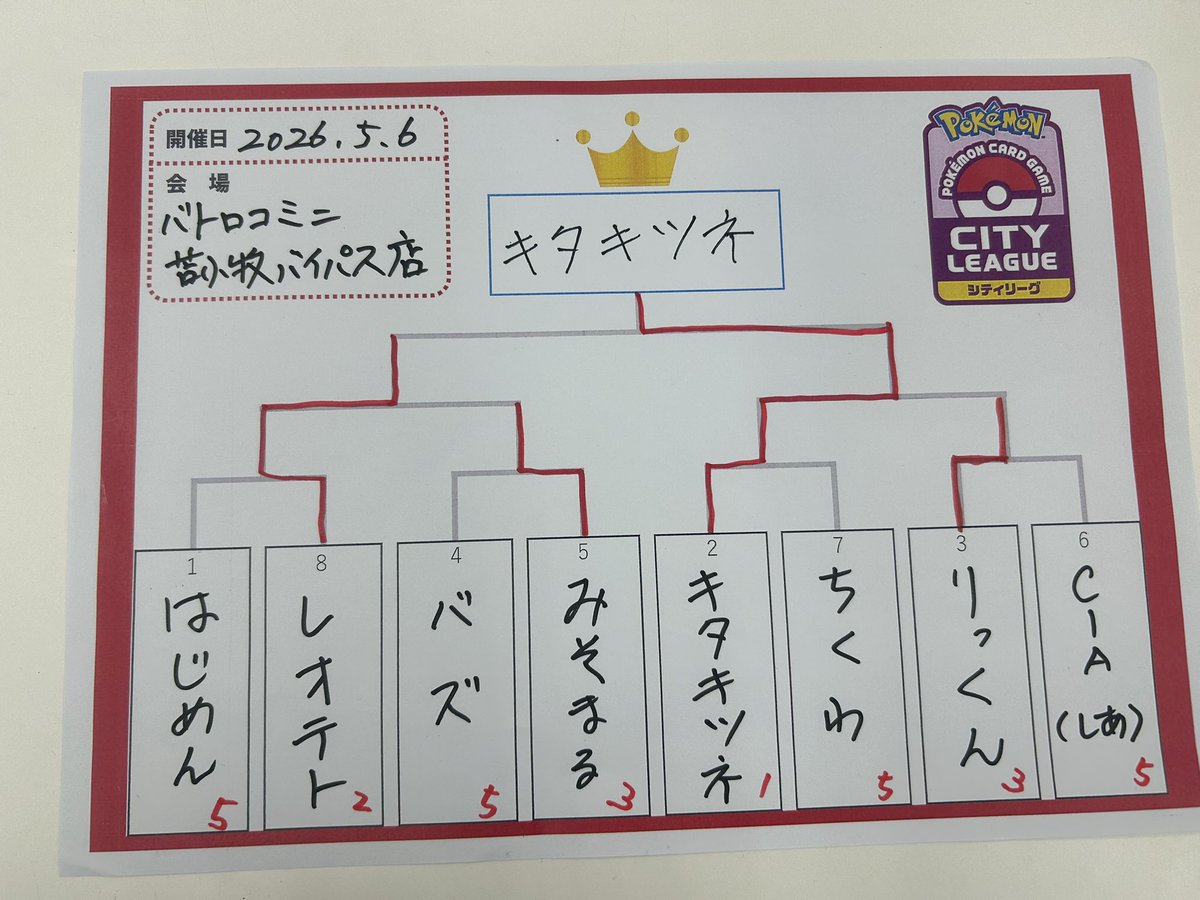 開催日 2026.5.6
会 場
バトロコミニ
苫小牧バイパス店
キタキツネ
POKÉMON
POKÉMON CARD GAME
CITY
LEAGUE
シティリーグ
1
はじめん
5
8
レオテト
2
4
バズ
5
5
みそまる
3
2
キタキツネ
1
7
ちくわ
5
3
りっくん
3
6
CIA
(しあ)
5